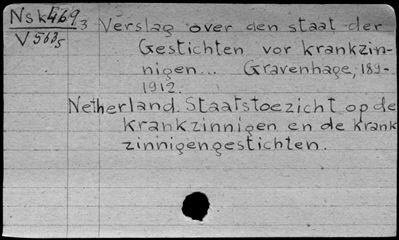 Nsk469
3 Verslag over den staat der
V 568
5
Gestichten vor krankzin-
nigen... Gravenhage, 189-
1912.
Netherland. Staatstoezicht op de
krankzinnigen en de krank
zinnigengestichten.